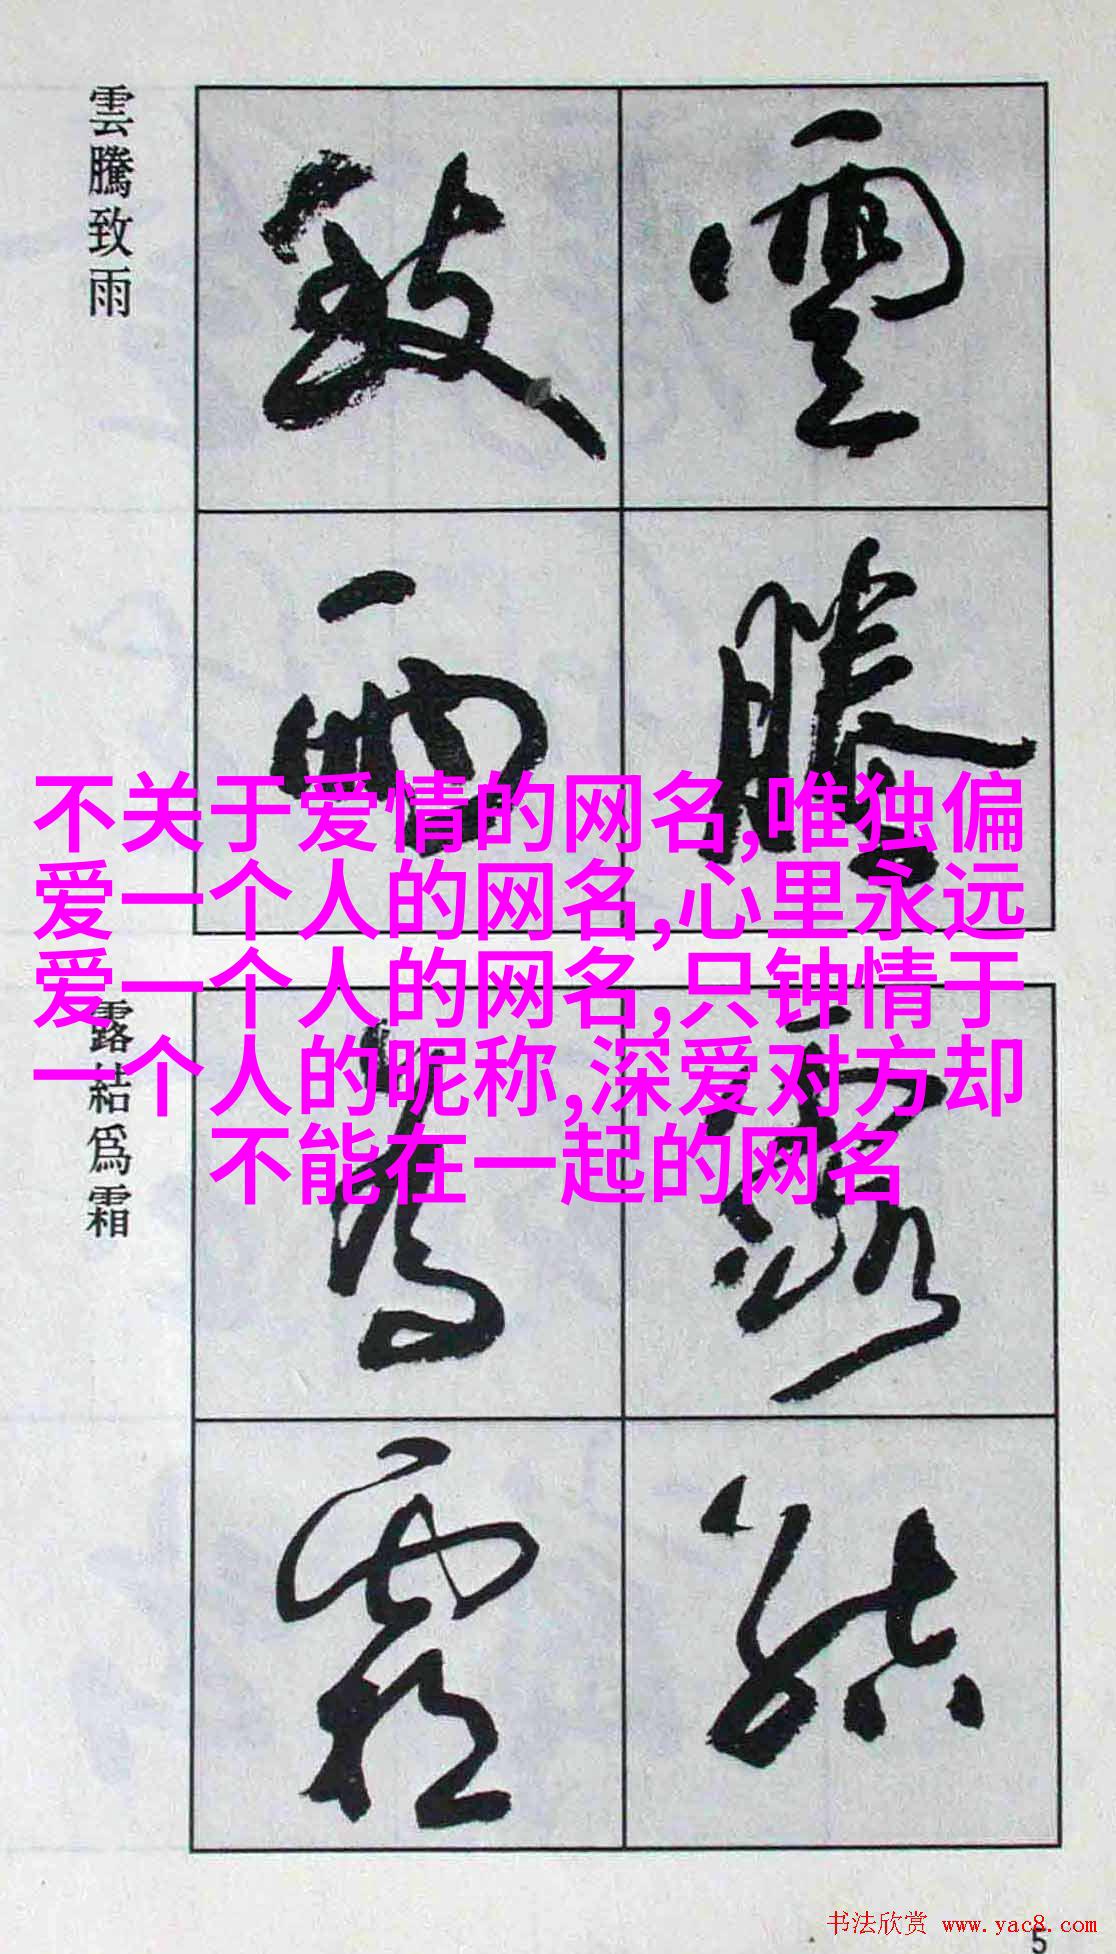 雲騰致雨
雲
騰
致
雨
不关于爱情的网名,唯独偏
爱一个人的网名,心里永远
爱一个人的网名,只钟情于
一个人的昵称,深爱对方却
不能在一起的网名
露結爲霜
露
結
爲
霜
书法欣赏 www.yac8.com
5